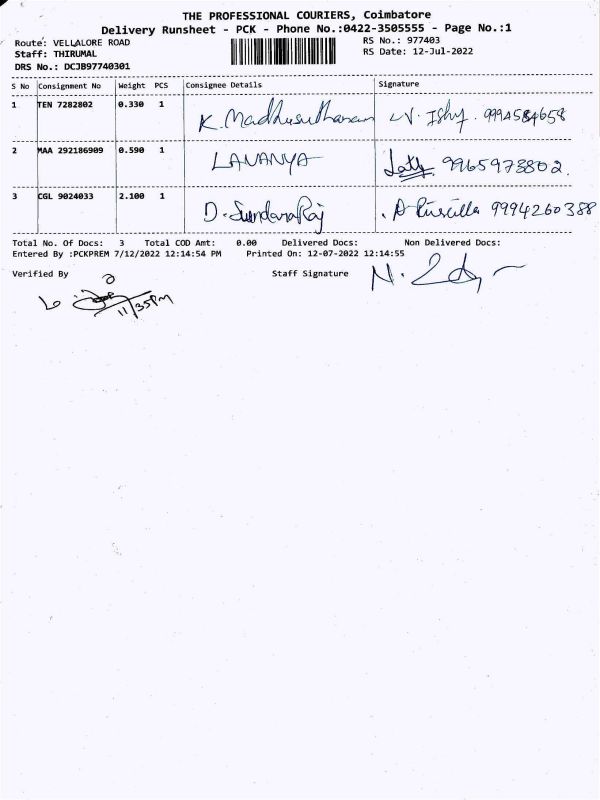 THE PROFESSIONAL COURIERS, Coimbatore
Delivery Runsheet - PCK - Phone No.:0422-3505555 - Page No.:1
Route: VELLALORE ROAD RS No.: 977403
Staff: THIRUMAL RS Date: 12-Jul-2022
DRS No.: DCJB97740301
S No Consignment No Weight PCS Consignee Details Signature
1 TEN 7282802 0.330 1 K. Madhusuthanan 9994584658
2 MAA 292186909 0.590 1 LAVANYA 9965973802.
3 CGL 9024033 2.100 1 D. SundaraRaj A Priscilla 9994260388
Total No. Of Docs: 3 Total COD Amt: 0.00 Delivered Docs: Non Delivered Docs:
Entered By :PCKPREM 7/12/2022 12:14:54 PM Printed On: 12-07-2022 12:14:55
Verified By Staff Signature
11/35PM